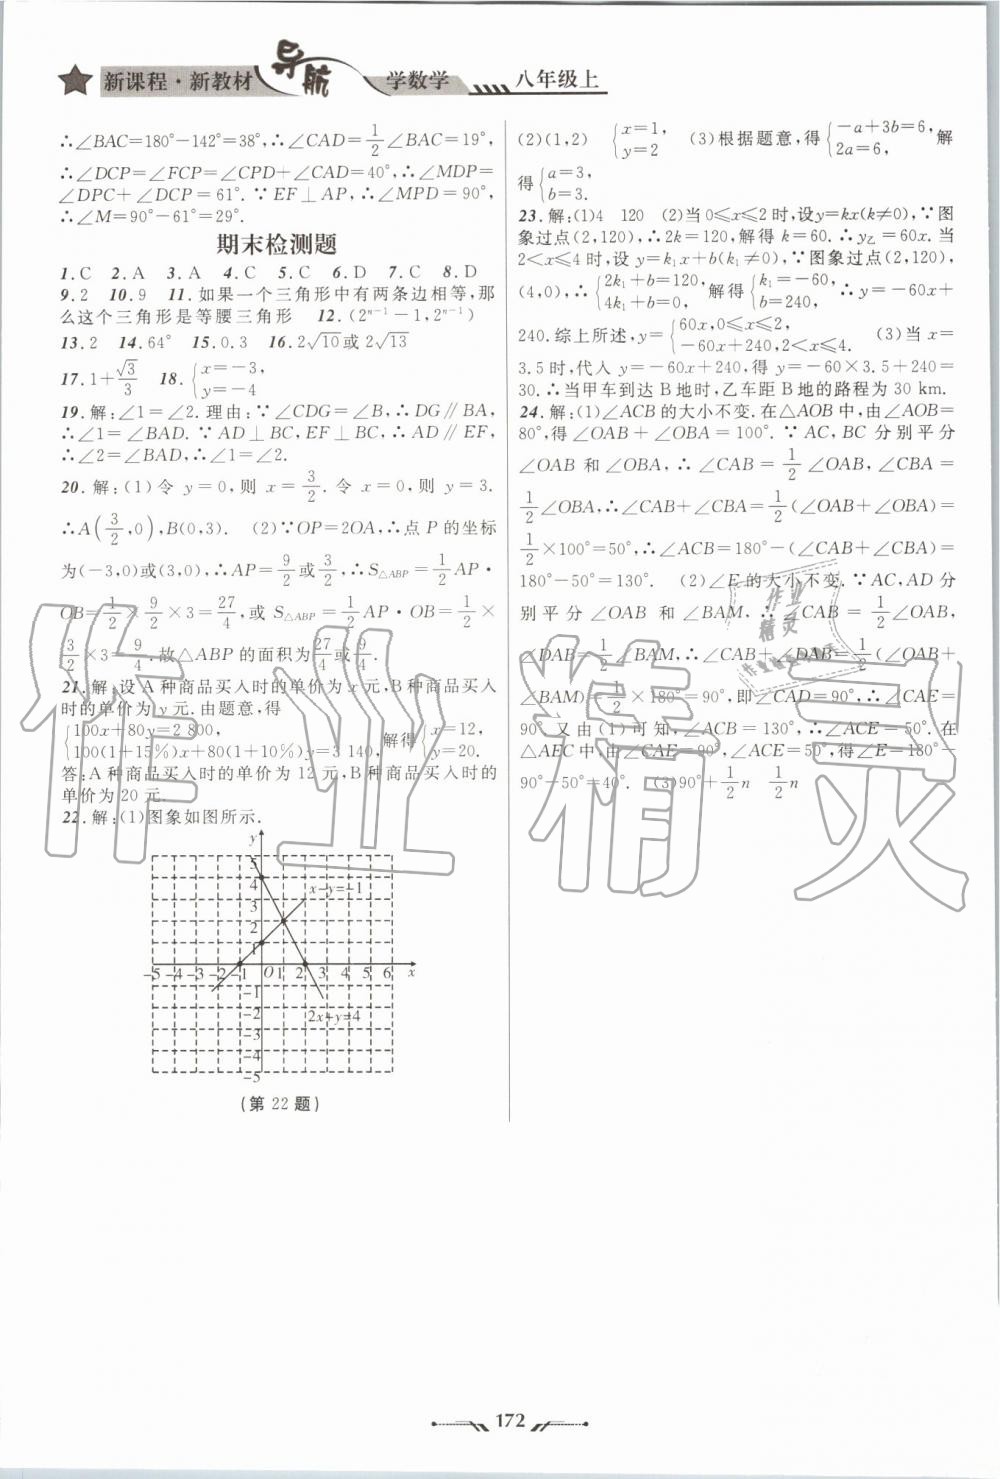 新课程·新教材 导航 学数学 八年级上
∴∠BAC=180°-142°=38°,∴∠CAD=1/2∠BAC=19°,
∴∠DCP=∠FCP=∠CPD+∠CAD=40°,∴∠MDP=
∠DPC+∠DCP=61°.∵EF⊥AP,∴∠MPD=90°,
∴∠M=90°-61°=29°.
期末检测题
1.C 2.A 3.A 4.C 5.C 6.D 7.C 8.D
9.2 10.9 11.如果一个三角形中有两条边相等,那
么这个三角形是等腰三角形 12.(2^{n-1}-1,2^{n-1})
13.2 14.64° 15.0.3 16.2√10或2√13
17.1+√3/3 18.{x=-3, y=-4
19.解:∠1=∠2.理由:∵∠CDG=∠B,∴DG∥BA,
∴∠1=∠BAD.∵AD⊥BC,EF⊥BC,∴AD∥EF,
∴∠2=∠BAD,∴∠1=∠2.
20.解:(1)令y=0,则x=3/2.令x=0,则y=3.
∴A(3/2,0),B(0,3). (2)∵OP=2OA,∴点P的坐标
为(-3,0)或(3,0),∴AP=9/2或3/2,∴S△ABP=1/2AP·
OB=1/2×9/2×3=27/4,或S△ABP=1/2AP·OB=1/2×
3/2×3=9/4.故△ABP的面积为27/4或9/4.
21.解:设A种商品买入时的单价为x元,B种商品买入
时的单价为y元.由题意,得
{100x+80y=2 800, 100(1+15%)x+80(1+10%)y=3 140, 解得{x=12, y=20.
答:A种商品买入时的单价为12元,B种商品买入时的
单价为20元.
22.解:(1)图象如图所示.
y
5
4
3
2
1
x-y=-1
-5 -4 -3 -2 -1 O 1 2 3 4 5 6 x
-1
-2
-3
-4
-5
2x+y=4
(第22题)
(2)(1,2) {x=1, y=2 (3)根据题意,得{-a+3b=6, 2a=6, 解
得{a=3, b=3.
23.解:(1)4 120 (2)当0≤x≤2时,设y=kx(k≠0),∵图
象过点(2,120),∴2k=120,解得k=60.∴y乙=60x.当
2<x≤4时,设y=k₁x+b(k₁≠0),∵图象过点(2,120),
(4,0),∴{2k₁+b=120, 4k₁+b=0, 解得{k₁=-60, b=240, ∴y=-60x+
240.综上所述,y={60x,0≤x≤2, -60x+240,2<x≤4. (3)当x=
3.5时,代入y=-60x+240,得y=-60×3.5+240=
30.∴当甲车到达B地时,乙车距B地的路程为30 km.
24.解:(1)∠ACB的大小不变.在△AOB中,由∠AOB=
80°,得∠OAB+∠OBA=100°.∵AC,BC分别平分
∠OAB和∠OBA,∴∠CAB=1/2∠OAB,∠CBA=
1/2∠OBA,∴∠CAB+∠CBA=1/2(∠OAB+∠OBA)=
1/2×100°=50°,∴∠ACB=180°-(∠CAB+∠CBA)=
180°-50°=130°. (2)∠E的大小不变.∵AC,AD分
别平分∠OAB和∠BAM,∴∠CAB=1/2∠OAB,
∠DAB=1/2∠BAM,∴∠CAB+∠DAB=1/2(∠OAB+
∠BAM)=1/2×180°=90°,即∠CAD=90°,∴∠CAE=
90°.又由(1)可知,∠ACB=130°,∴∠ACE=50°.在
△AEC中,由∠CAE=90°,∠ACE=50°,得∠E=180°-
90°-50°=40°. (3)90°+1/2n 1/2n
作业精灵
作业
精灵
172